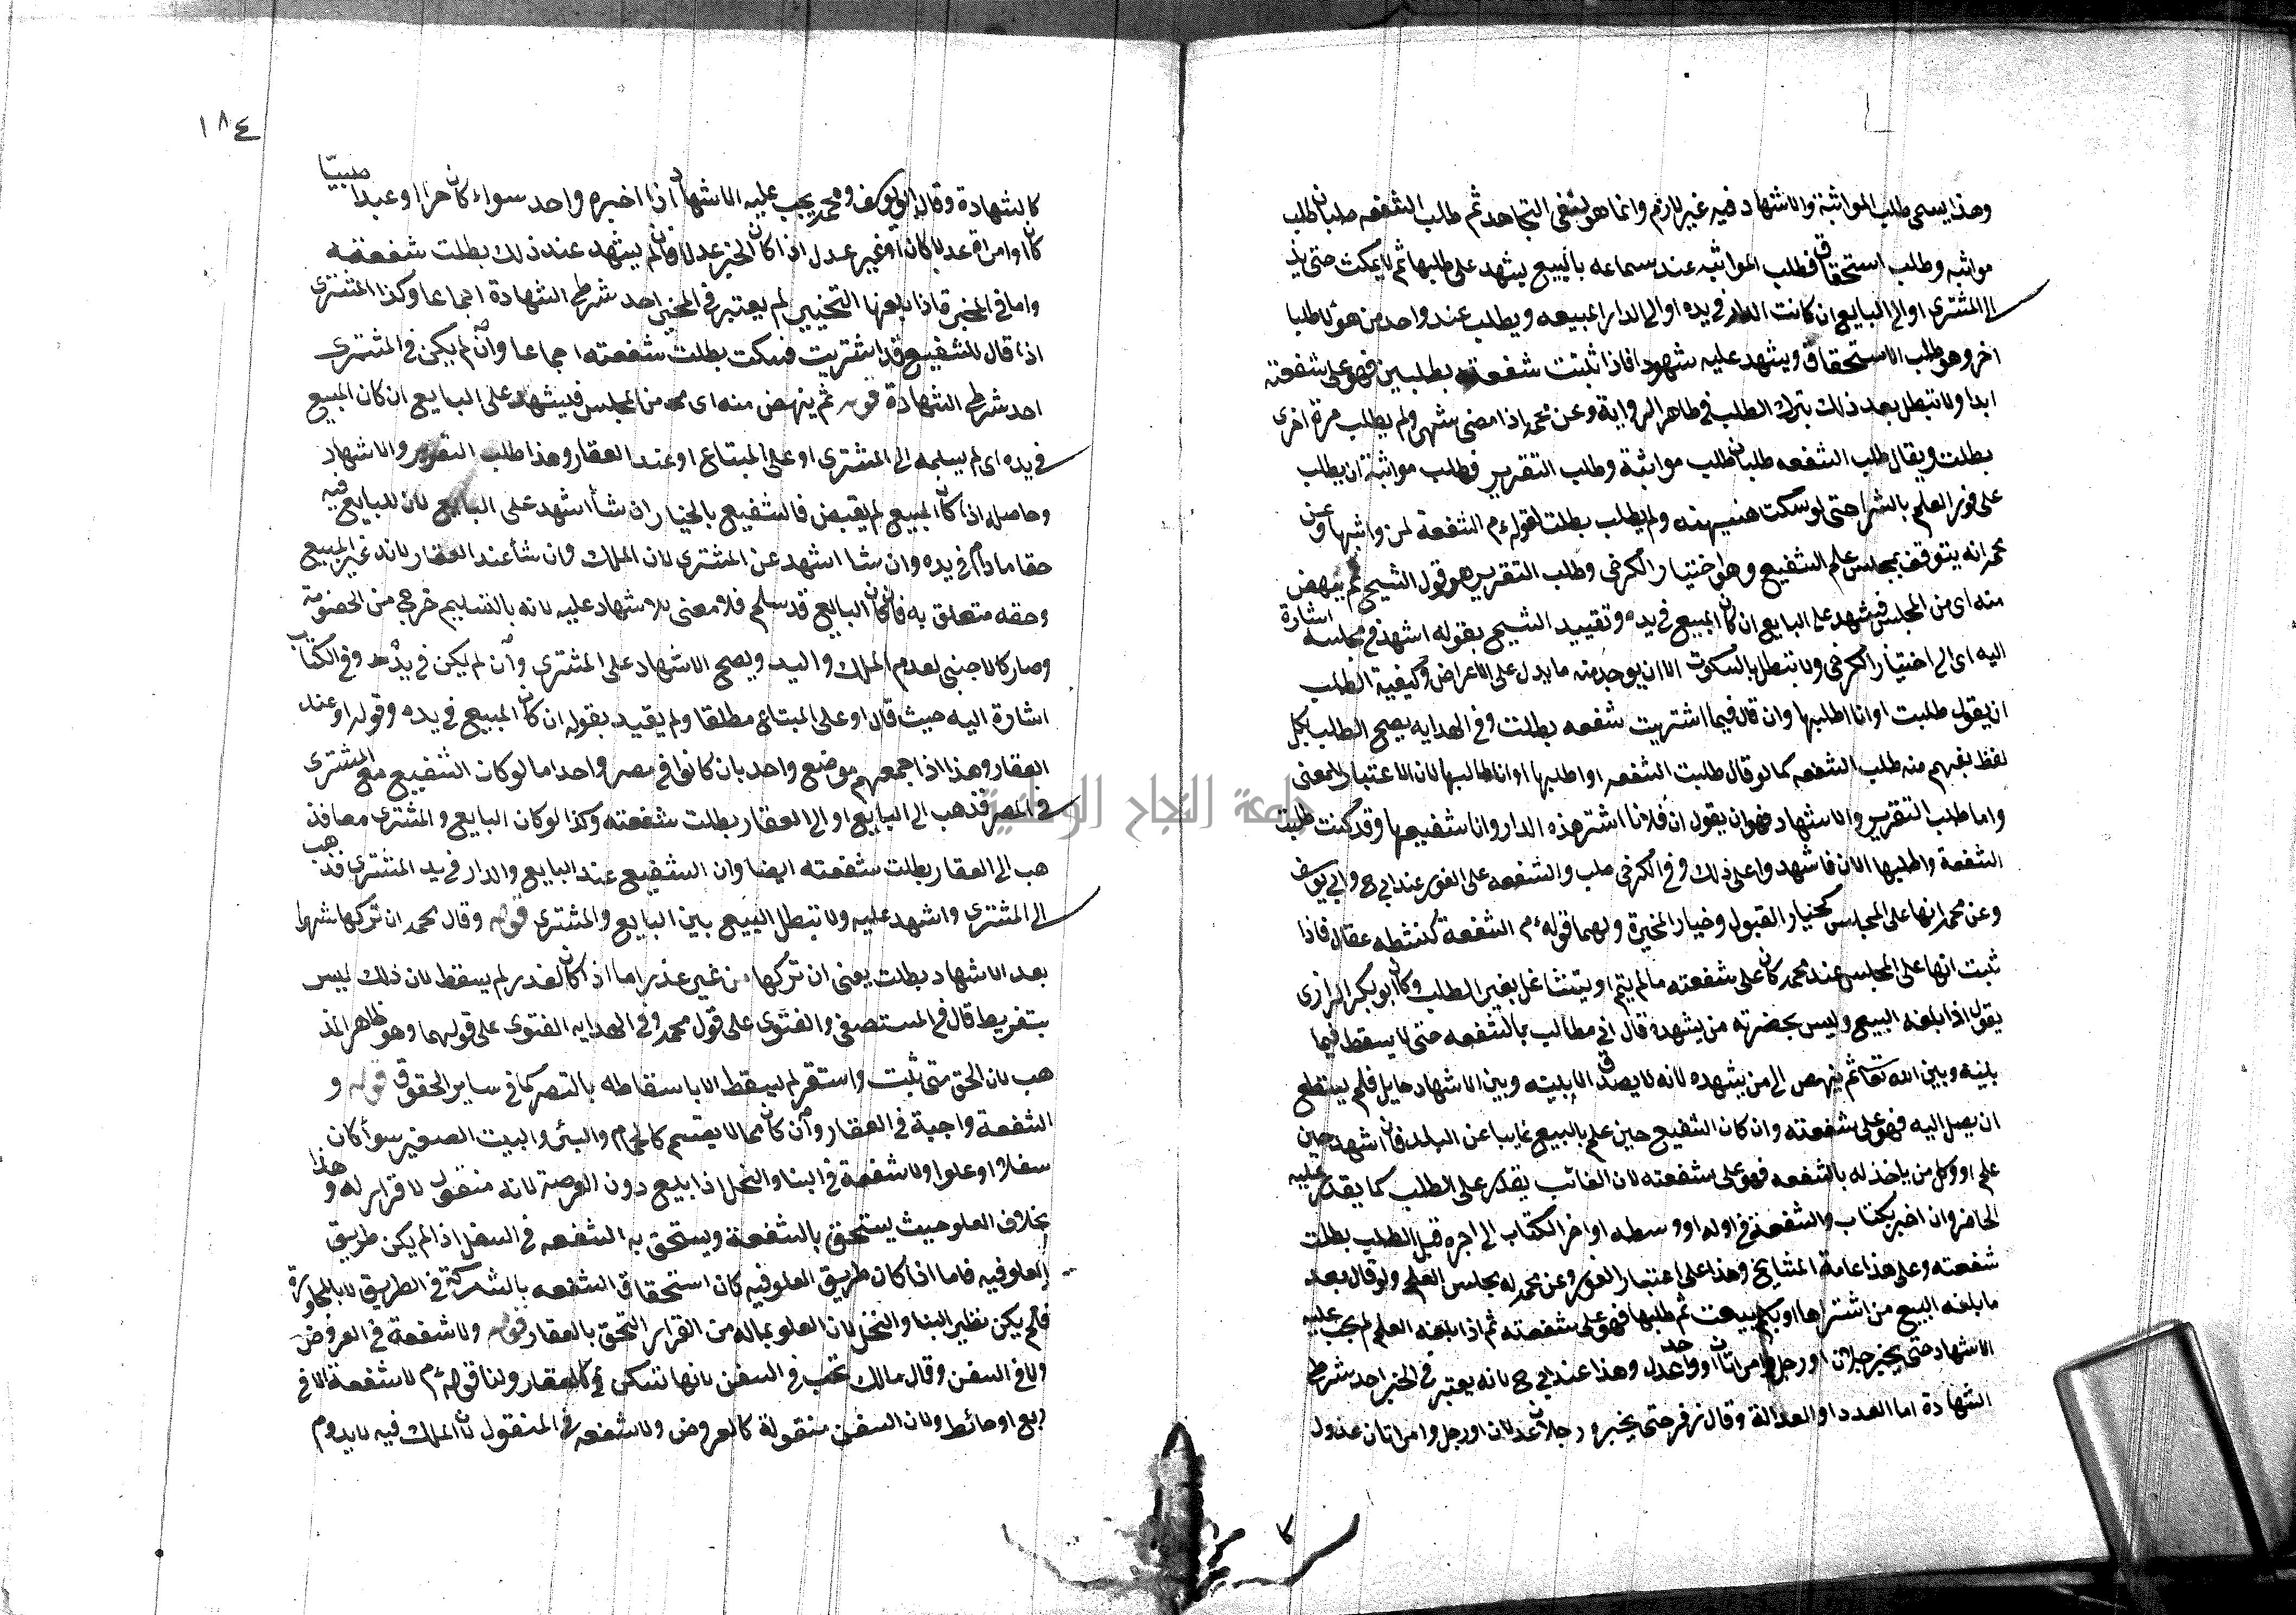 وهذا يسمى طلب المواثبة والاشهاد فيه غير لازم وانما هو لنفى التجاحد ثم طلب الشفعه طلبان طلب
مواثبه وطلب استحقاق فطلب المواثبه عند سماعه بالبيع يشهد على طلبها ثم لا يمكث حتى يذهب
الى المشترى او الى البايع ان كانت الدار فى يده او الى الدار المبيعه ويطلب عند واحد من هولا طلبا
اخر وهو طلب الاستحقاق ويشهد عليه شهودا فاذا ثبتت شفعته بطلبين فهو على شفعته
ابدا ولا تبطل بعد ذلك بترك الطلب فى ظاهر الرواية وعن محمد اذا مضى شهر ولم يطلب مرة اخرى
بطلت ويقال طلب الشفعه طلبان طلب مواثبة وطلب التقرير فطلب مواثبة ان يطلب
على فور العلم بالشرا حتى لو سكت هنيهنه ولم يطلب بطلت لقوله ءم الشفعة لمن واثبها وعن
محمد انه يتوقف بمجلس علم الشفيع وهو اختيار الكرخى وطلب التقرير هو قول الشيخ ثم ينهض
منه اى من المجلس فيشهد على البايع ان كان المبيع فى يده وتقييد الشيخ بقوله اشهد فى مجلسه اشارة
اليه اى الى اختيار الكرخى ولا تبطل بالسكوت الا ان يوجد منه ما يدل على الاعراض وكيفية الطلب
ان يقول طلبت او انا اطلبها وان قال فيما اشتريت شفعه بطلت وفى الهدايه يصح الطلب بكل
لفظ يفهم منه طلب الشفعه كما لو قال طلبت الشفعه او اطلبها او انا طالبها لان الاعتبار للمعنى
واما طلب التقرير والاشهاد فهو ان يقول ان فلانا اشتر هذه الدار وانا شفيعها وقد كنت طلبت
الشفعة واطلبها الان فاشهدوا على ذلك وفى الكرخى طلب والشفعه على الفور عند ابى ح وابى يوسف
وعن محمد انها على المجلس كخيار القبول وخيار المخيرة ولهما قوله ءم الشفعة كنشطه عقال فاذا
ثبت انها على المجلس عند محمد كان على شفعته ما لم يقم او يتشاغل بغير الطلب وكان ابو بكر الرازى
يقول اذا بلغه البيع وليس بحضرته من يشهده قال انى مطالب بالشفعه حتى لا يسقط فيما
بينه وبين الله تعا ثم ينهض الى من يشهده لانه لا يصدق الا ببينه وبين الاشهاد حايل فلم يستطع
ان يصل اليه فهو على شفعته وان كان الشفيع حين علم بالبيع غايبا عن البلد فان اشهد حين
علم او وكل من ياخذ له بالشفعه فهو على شفعته لان الغائب يقدر على الطلب كما يقدر عليه
الحاضر وان اخبر بكتاب والشفعة فى اوله او وسطه او اخر الكتاب الى اخره قبل الطلب بطلت
شفعته وعلى هذا عامة المشايخ وهذا على اعتبار الفور وعن محمد له مجلس العلم ولو قال بعد
ما بلغه البيع من اشتراها او بكم بيعت ثم طلبها فهو على شفعته ثم اذا بلغه العلم لم يجب عليه
الاشهاد حتى يخبر رجلان او رجل وامراتان او واحد عدل وهذا عند ابى ح لانه يعتبر فى الخبر احد شرطى
الشهادة اما العدد او العدالة وقال زفر حتى يخبر رجلان عدلان او رجل وامراتان عدول
١٨٤
كالشهادة وقال ابى يوسف ومحمد يجب عليه الاشهاد اذا اخبره واحد سواء كان حرا او عبدا صبيا
كان او امراة عدلا كان او غير عدل اذا كان الخبر عدلا فان لم يشهد عند ذلك بطلت شفعته
واما فى المخبر فاذا بلغها التخيير لم يعتبر فى المخبر احد شرطى الشهادة اجماعا وكذا المشترى
اذا قال للشفيع قد اشتريت فسكت بطلت شفعته اجماعا وان لم يكن فى المشترى
احد شرطى الشهادة قوله ثم ينهض منه اى من المجلس فيشهد على البايع ان كان المبيع
فى يده اى لم يسلمه الى المشترى او على المبتاع او عند العقار وهذا طلب التقرير والاشهاد
وحاصله اذا كان المبيع لم يقبض فالشفيع بالخيار ان شأ اشهد على البايع لان للبايع فيه
حقا ما دام فى يده وان شا اشهد عن المشترى لان الملك وان شأ عند العقار لانه غير المبيع
وحقه متعلق به فان كان البايع قد سلم فلا معنى للاشهاد عليه لانه بالتسليم خرج من الخصومة
وصار كالاجنبى لعدم الملك واليد ويصح الاشهاد على المشترى وان لم يكن فى يده وفى الكتاب
اشارة اليه حيث قال او على المبتاع مطلقا ولم يقيد بقوله ان كان المبيع فى يده وقوله او عند
العقار وهذا اذا جمعهم موضع واحد بان كانوا فى مصر واحد اما لو كان الشفيع مع المشترى
فى المصر فذهب الى البايع او الى العقار بطلت شفعته وكذا لو كان البايع والمشترى معا فذ
هب الى العقار بطلت شفعته ايضا وان الشفيع عند البايع والدار فى يد المشترى فذهب
الى المشترى واشهد عليه ولا تبطل البيع بين البايع والمشترى قوله وقال محمد ان تركها شهرا
بعد الاشهاد بطلت يعنى ان تركها من غير عذر اما اذا كان لعذر لم يسقط لان ذلك ليس
بتفريط قال فى المستصفى والفتوى على قول محمد وفى الهدايه الفتوى على قولهما وهو ظاهر المذ
هب لان الحق متى ثبت واستقر لم يسقط الا باسقاطه بالتصر كما فى ساير الحقوق قوله و
الشفعة واجبة فى العقار وان كان مما لا يقسم كالحمام والبئر والبيت الصغير سوأ كان
سفلا او علوا ولا شفعة فى البنا والنخل اذا بيع دون العرصة لانه منقول لا قرار له وهذا
بخلاف العلو حيث يستحق بالشفعة ويستحق به الشفعه فى السفل اذا لم يكن طريق
العلو فيه فاما اذا كان طريق العلو فيه كان استحقاق الشفعه بالشركة فى الطريق لا بالمجاورة
فلم يكن نظير البنا والنخل لان العلو بماله من القرار التحق بالعقار قوله ولا شفعة فى العروض
ولا فى السفن وقال مالك تجب فى السفن لانها تسكن كالعقار ولنا قوله ءم لا شفعة الا فى
ربع او حائط ولان السفن منقولة كالعروض ولا شفعه فى المنقول لان الملك فيه لا يدوم
جامعة النجاح الوطنية